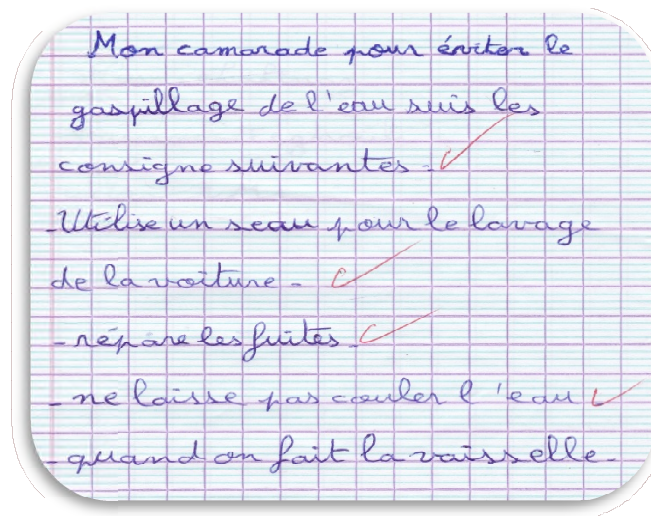 Mon camarade pour éviter le
gaspillage de l'eau suis les
consigne suivantes -
- Utilise un seau pour le lavage
de la voiture -
- répare les fuites -
- ne laisse pas couler l'eau
- quand on fait la vaisselle -